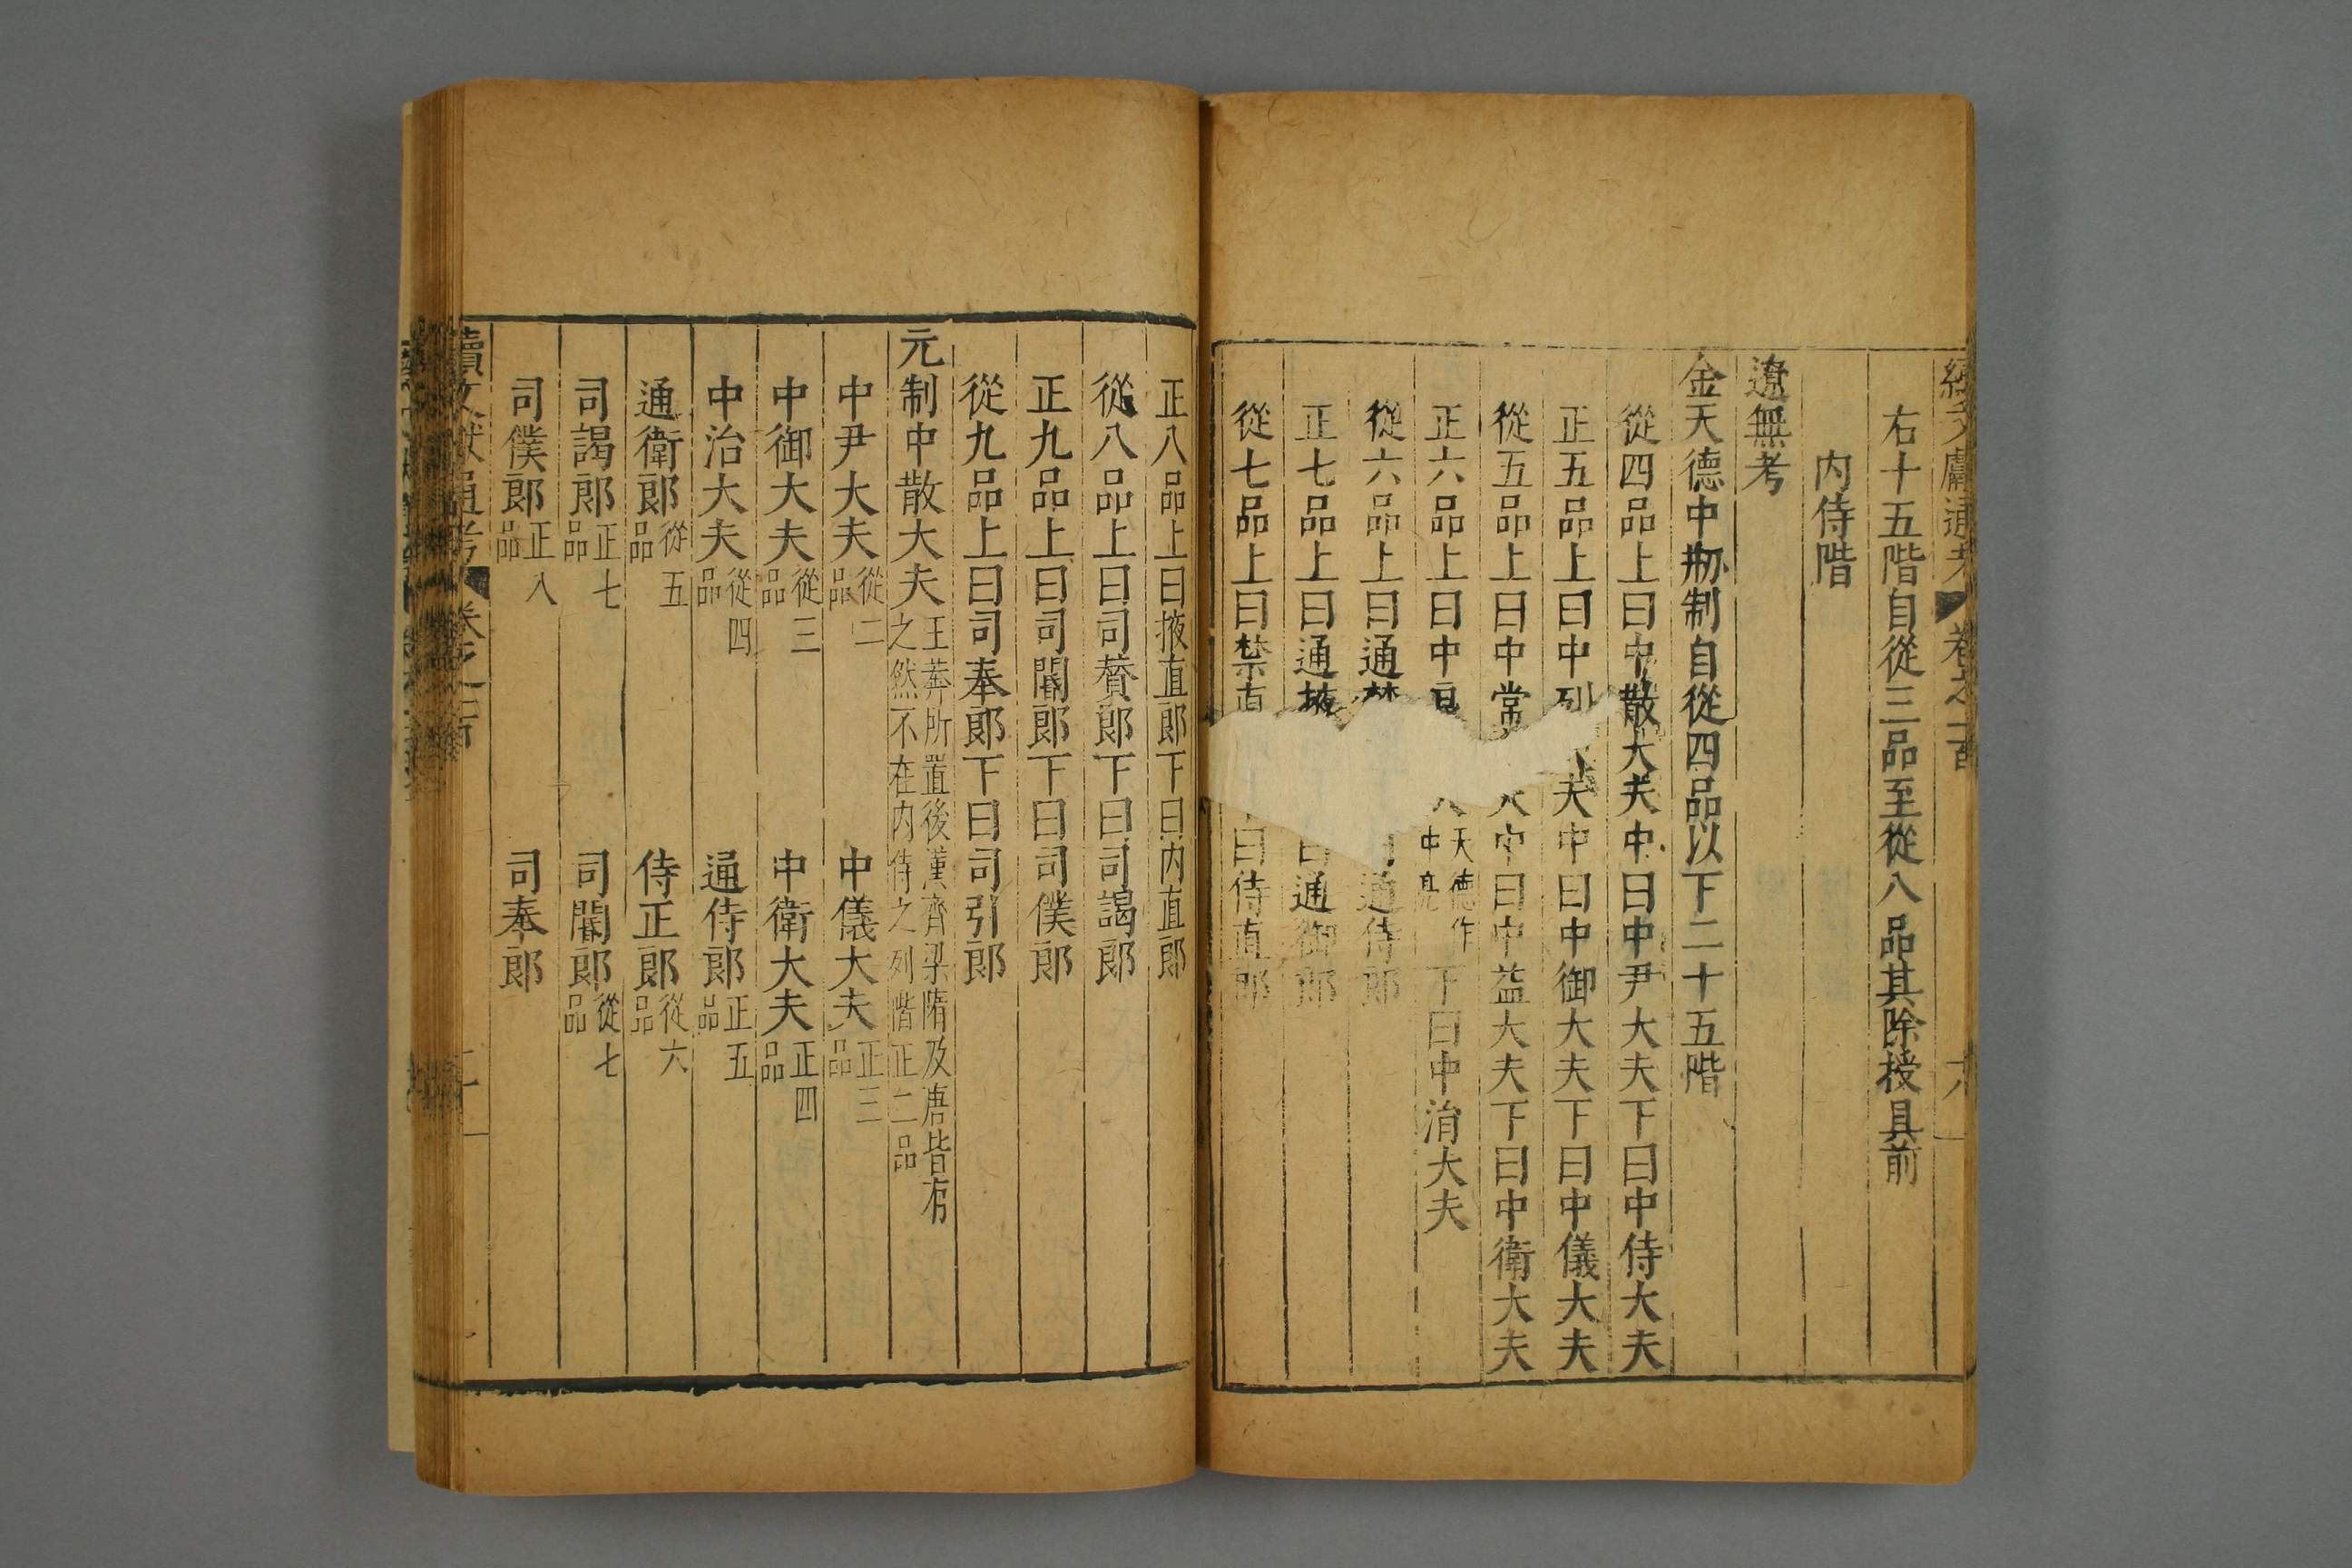 續文獻通考 卷之一百 六
右十五階自從三品至從八品其除授具前
內侍階
遼無考
金天德中剏制自從四品以下二十五階
從四品上曰中散大夫中曰中尹大夫下曰中侍大夫
正五品上曰中列大夫中曰中御大夫下曰中儀大夫
從五品上曰中常 中曰中益大夫下曰中衛大夫
正六品上曰中 天德作中亮 下曰中涓大夫
從六品上曰通禁 通侍郎
正七品上曰通掖 曰通御郎
從七品上曰禁直 曰侍直郎
正八品上曰掖直郎下曰內直郎
從八品上曰司贊郎下曰司謁郎
正九品上曰司閽郎下曰司僕郎
從九品上曰司奉郎下曰司引郎
元制中散大夫 王莽所置後漢齊梁隋及唐皆有之然不在內侍之列階正二品
中尹大夫 從二品 中儀大夫 正三品
中御大夫 從三品 中衛大夫 正四品
中治大夫 從四品 通侍郎 正五品
通衛郎 從五品 侍正郎 從六品
司謁郎 正七品 司閽郎 從七品
司僕郎 正八品 司奉郎
續文獻通考 卷之一百